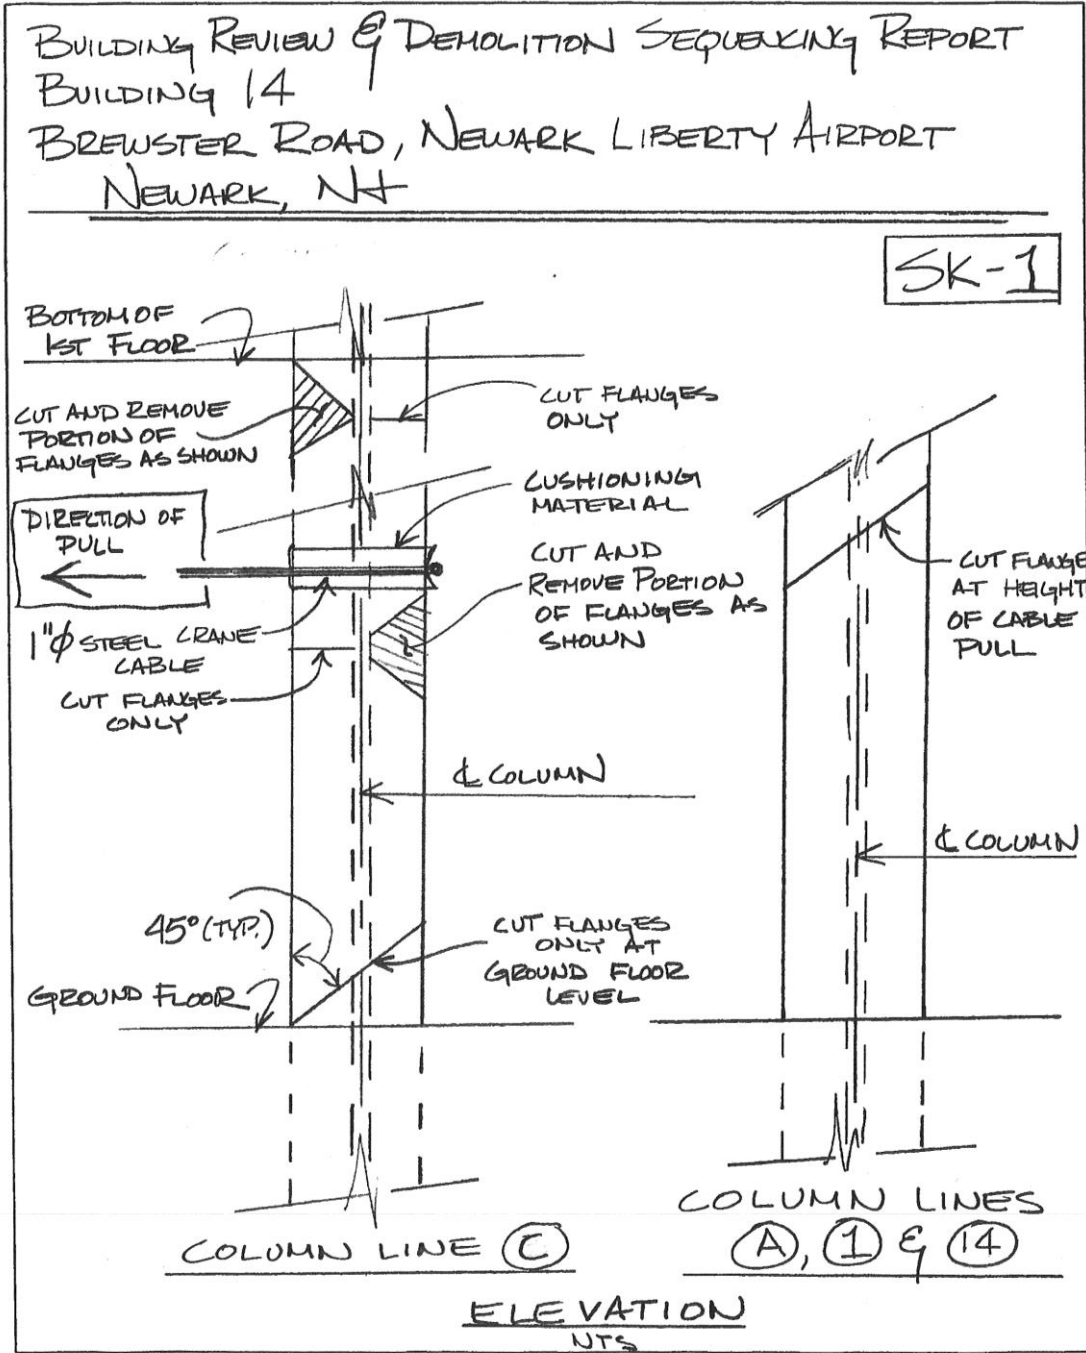 BUILDING REVIEW & DEMOLITION SEQUENCING REPORT
BUILDING 14
BREWSTER ROAD, NEWARK LIBERTY AIRPORT
NEWARK, NJ
SK-1
BOTTOM OF
1ST FLOOR
CUT AND REMOVE
PORTION OF
FLANGES AS SHOWN
CUT FLANGES
ONLY
DIRECTION OF
PULL
CUSHIONING
MATERIAL
CUT AND
REMOVE PORTION
OF FLANGES AS
SHOWN
1"φ STEEL CRANE
CABLE
CUT FLANGES
ONLY
CUT FLANGE
AT HEIGHT
OF CABLE
PULL
℄ COLUMN
℄ COLUMN
45° (TYP.)
CUT FLANGES
ONLY AT
GROUND FLOOR
LEVEL
GROUND FLOOR
COLUMN LINE C
COLUMN LINES
A, 1 & 14
ELEVATION
NTS